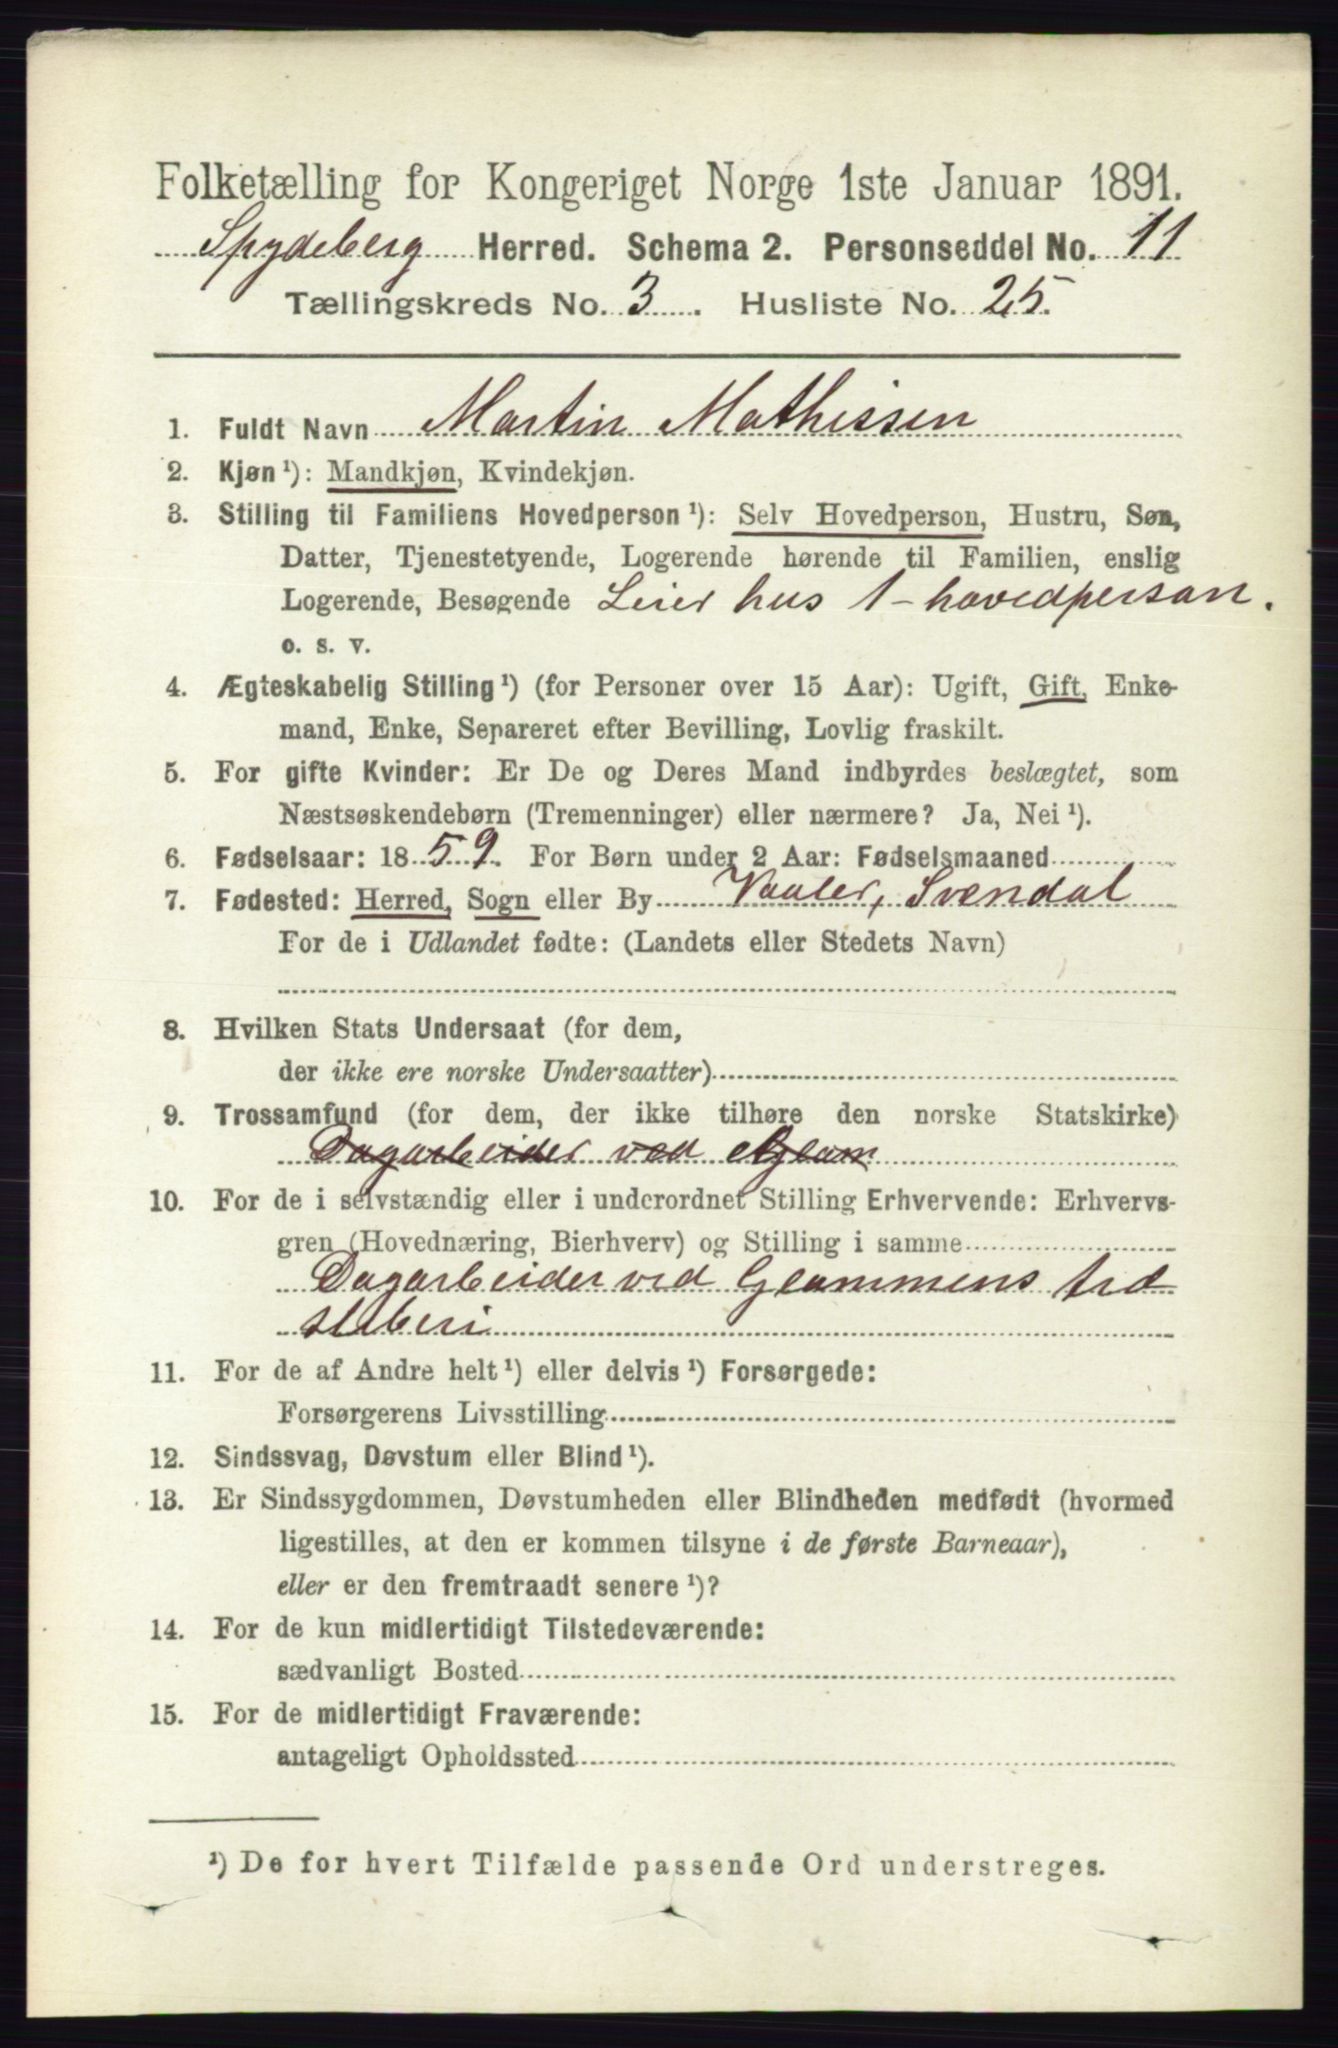 Folketælling for Kongeriget Norge 1ste Januar 1891.
Spydeberg Herred. Schema 2. Personseddel No. 11
Tællingskreds No. 3. Husliste No. 25.
1. Fuldt Navn Martin Mathissen
2. Kjøn ¹): Mandkjøn, Kvindekjøn.
3. Stilling til Familiens Hovedperson ¹): Selv Hovedperson, Hustru, Søn,
Datter, Tjenestetyende, Logerende hørende til Familien, enslig
Logerende, Besøgende Leier hus 1 - hovedperson.
o. s. v.
4. Ægteskabelig Stilling ¹) (for Personer over 15 Aar): Ugift, Gift, Enke-
mand, Enke, Separeret efter Bevilling, Lovlig fraskilt.
5. For gifte Kvinder: Er De og Deres Mand indbyrdes beslægtet, som
Næstsøskendebørn (Tremenninger) eller nærmere? Ja, Nei ¹).
6. Fødselsaar: 1859. For Børn under 2 Aar: Fødselsmaaned
7. Fødested: Herred, Sogn eller By Vaaler, Svendal
For de i Udlandet fødte: (Landets eller Stedets Navn)
8. Hvilken Stats Undersaat (for dem,
der ikke ere norske Undersaatter)
9. Trossamfund (for dem, der ikke tilhøre den norske Statskirke)
Dagarbeider ved Glom
10. For de i selvstændig eller i underordnet Stilling Erhvervende: Erhvervs-
gren (Hovednæring, Bierhverv) og Stilling i samme
Dagarbeider ved Glommens træ
sliberi
11. For de af Andre helt ¹) eller delvis ¹) Forsørgede:
Forsørgerens Livsstilling
12. Sindssvag, Døvstum eller Blind ¹).
13. Er Sindssygdommen, Døvstumheden eller Blindheden medfødt (hvormed
ligestilles, at den er kommen tilsyne i de første Barneaar),
eller er den fremtraadt senere ¹)?
14. For de kun midlertidigt Tilstedeværende:
sædvanligt Bosted
15. For de midlertidigt Fraværende:
antageligt Opholdssted
¹) De for hvert Tilfælde passende Ord understreges.